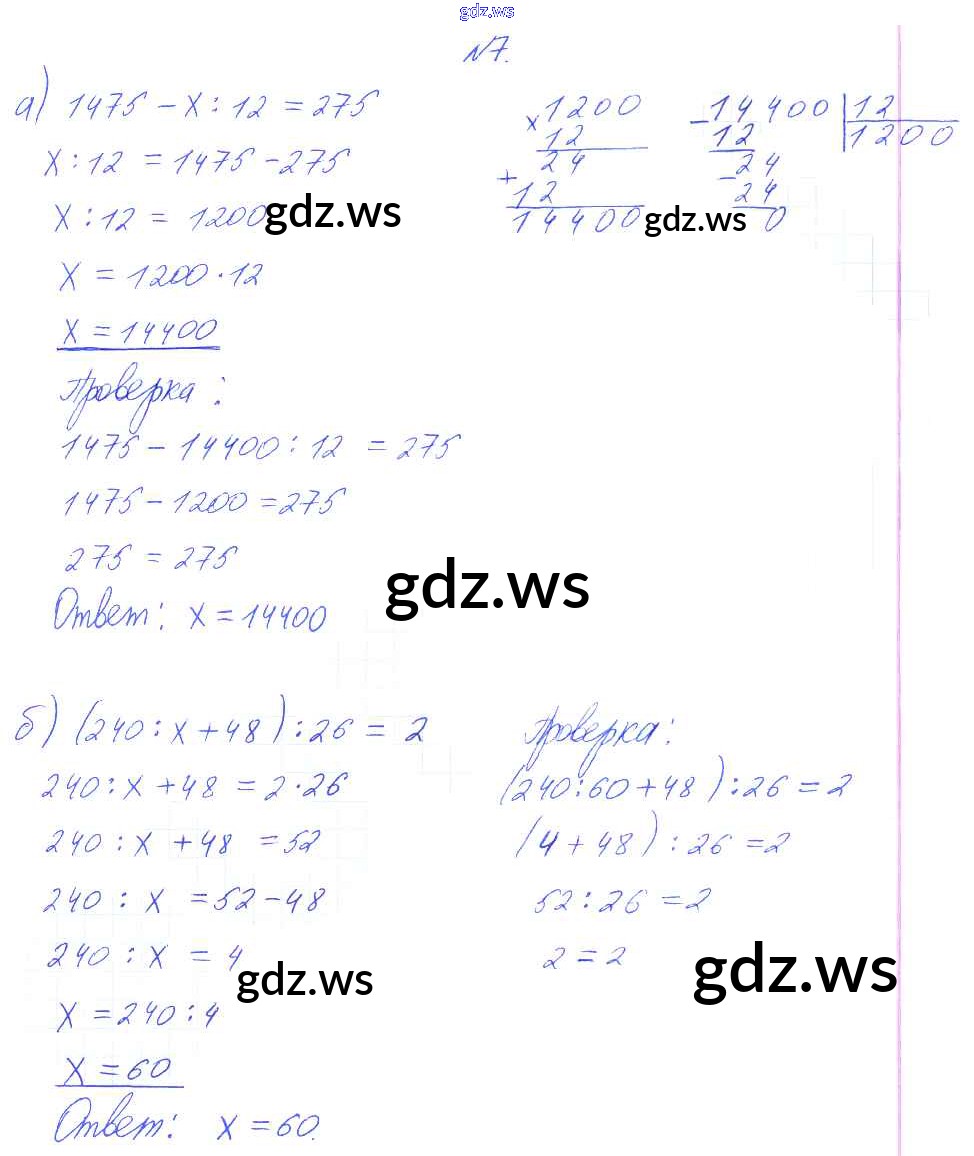 gdz.ws
№7.
а) 1475 - x : 12 = 275
x : 12 = 1475 - 275
x : 12 = 1200
gdz.ws
x = 1200 · 12
x = 14400
Проверка:
1475 - 14400 : 12 = 275
1475 - 1200 = 275
275 = 275
Ответ: x = 14400
× 1200
12
24
+
12
14400
gdz.ws
- 14400 | 12
12 1200
24
-
24
0
gdz.ws
б) (240 : x + 48) : 26 = 2
240 : x + 48 = 2 · 26
240 : x + 48 = 52
240 : x = 52 - 48
240 : x = 4
gdz.ws
x = 240 : 4
x = 60
Ответ: x = 60.
Проверка:
(240 : 60 + 48) : 26 = 2
(4 + 48) : 26 = 2
52 : 26 = 2
2 = 2
gdz.ws